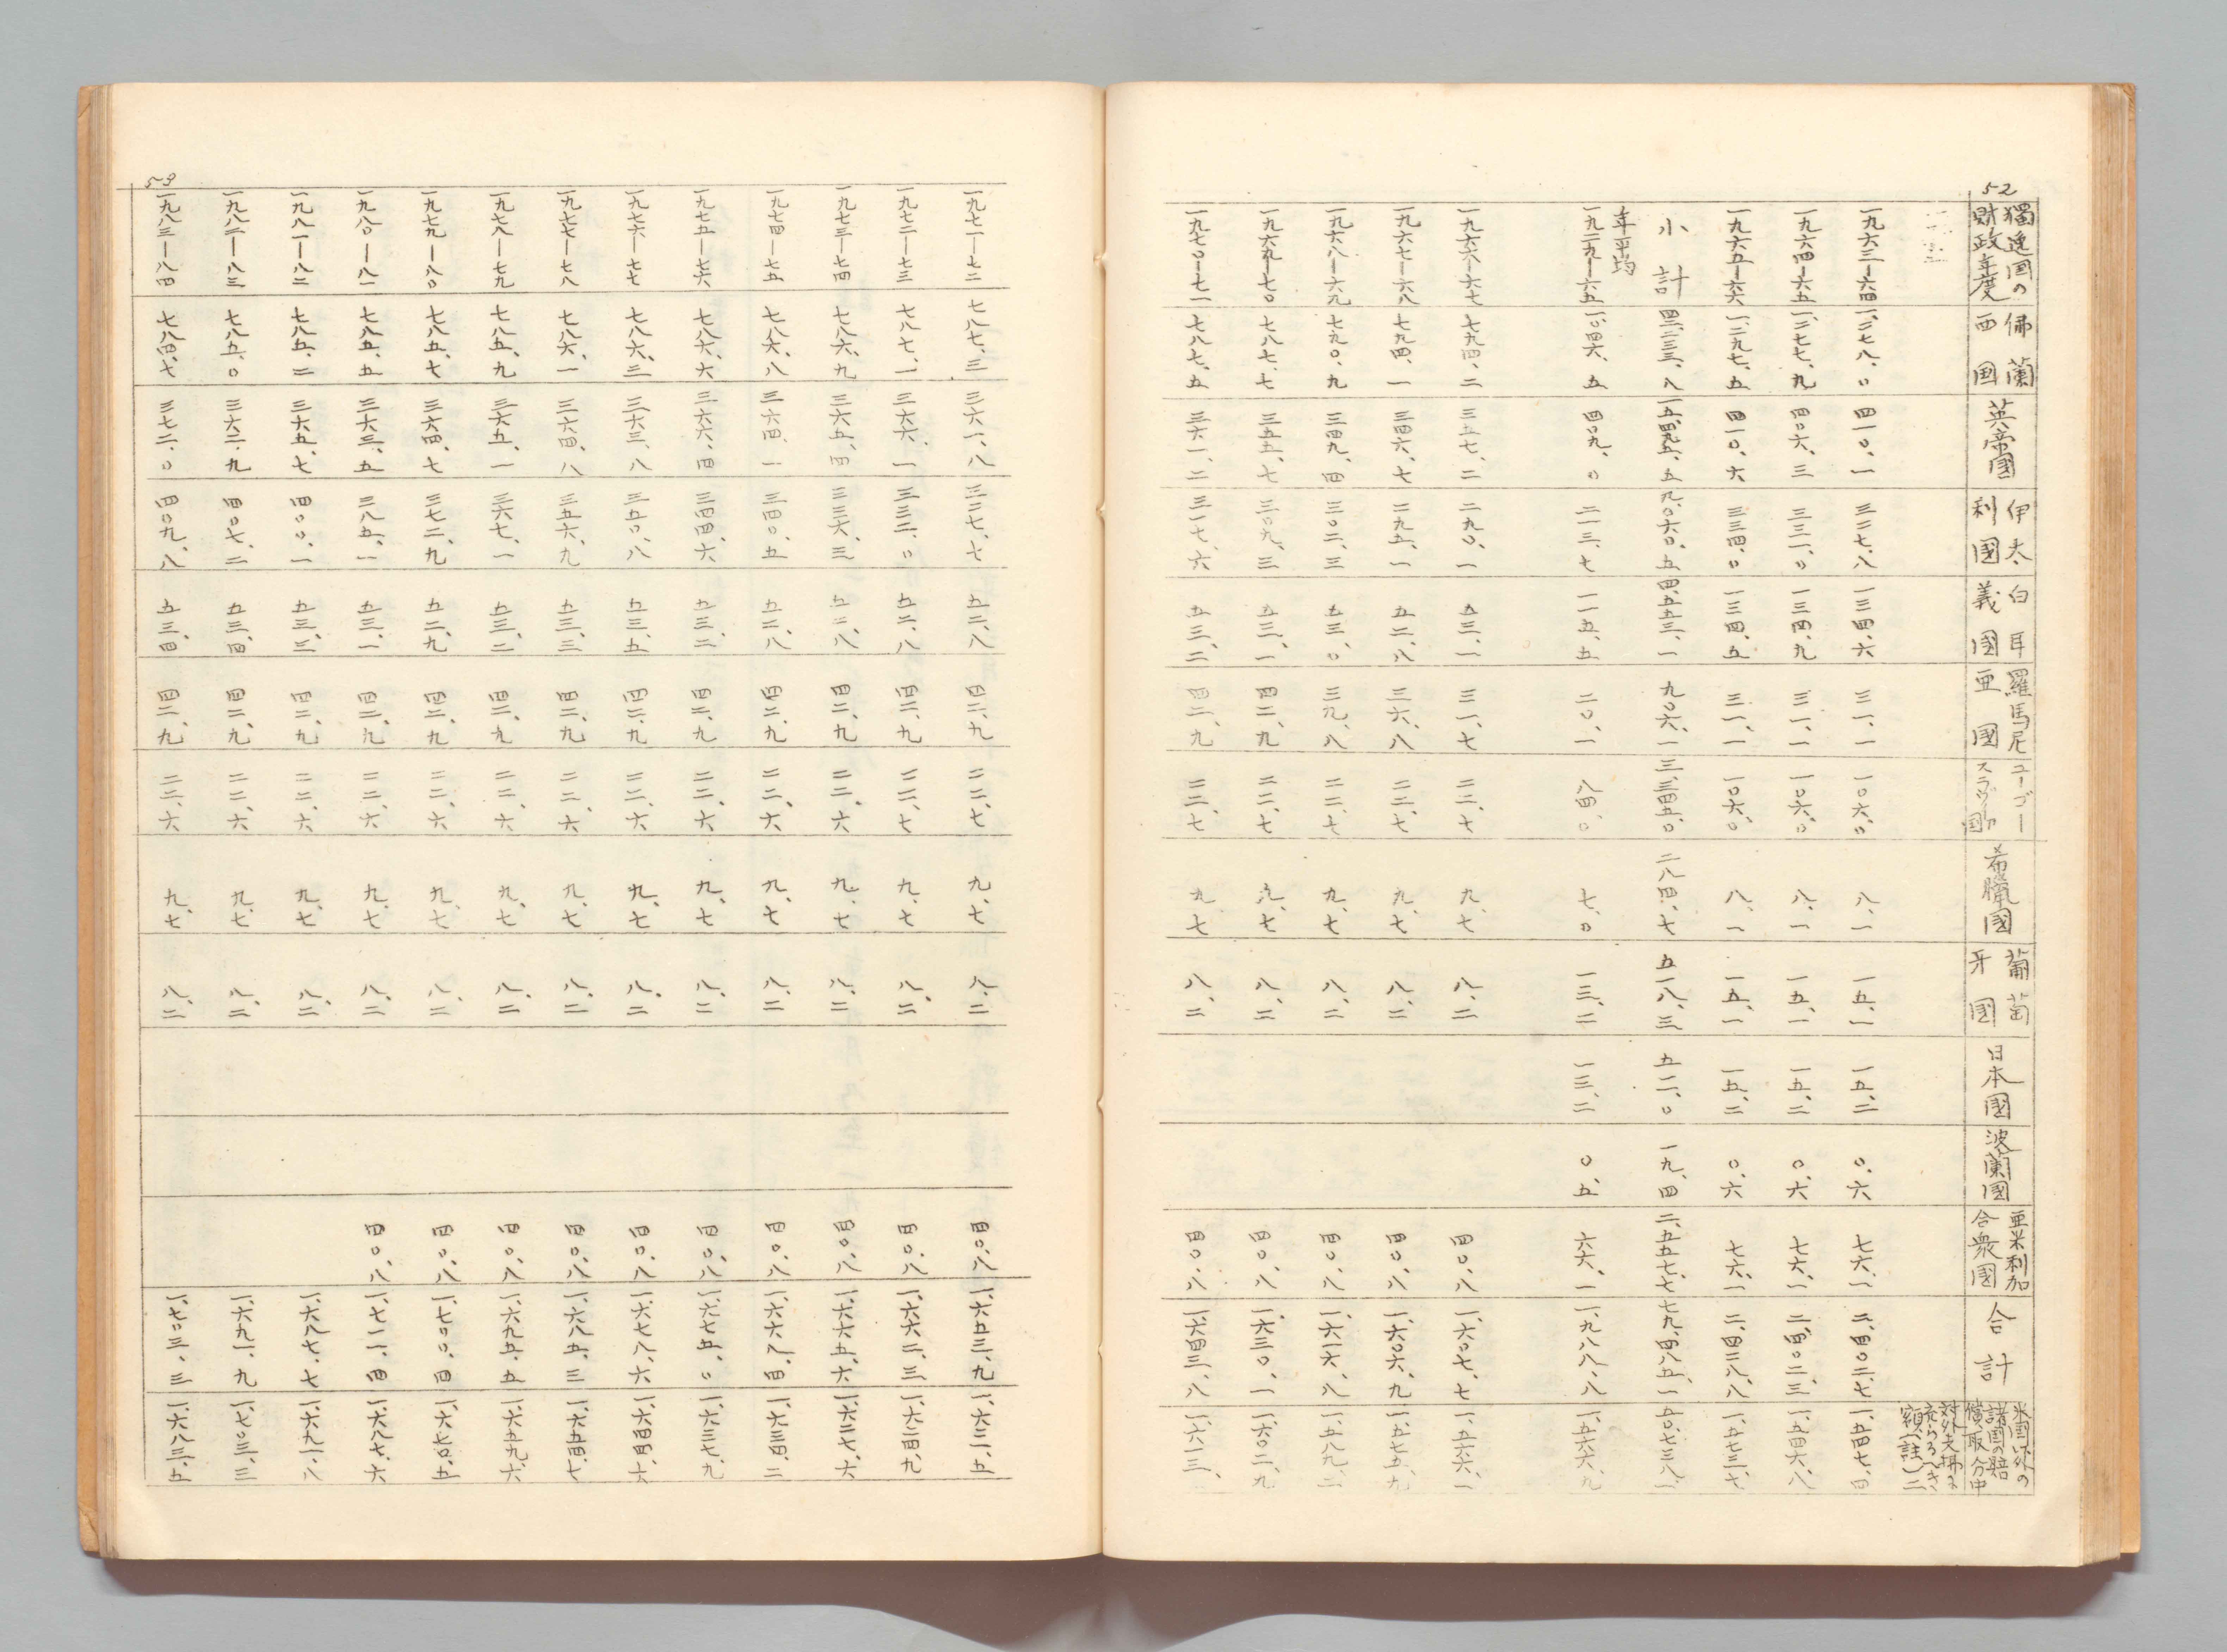 52
獨逸国の財政年度
佛蘭西国
英帝國
伊太利國
白耳義國
羅馬尼亜國
ユーゴースラヴ国
希臘國
葡萄牙國
日本國
波蘭國
亜米利加合衆國
合計
米国以外の諸国の賠償取分中対外支拂に充らるべき額(註)二
一九六三—六四 一、二七八、〇 四一〇、一 三二七、八 一三四、六 三一、一 一〇六、〇 八、一 一五、一 一五、二 〇、六 七六、一 二、四〇二、七 一、五四七、四
一九六四—六五 一、二七七、九 四〇六、三 三三一、〇 一三四、九 三一、一 一〇六、〇 八、一 一五、一 一五、二 〇、六 七六、一 二、四〇二、三 一、五四六、八
一九六五—六六 一、二九七、五 四一〇、六 三三四、〇 一三四、五 三一、一 一〇六、〇 八、一 一五、一 一五、二 〇、六 七六、一 二、四二八、八 一、五七三、七
小計 四二、二三三、八 一五、四九五、五 九、〇六〇、五 四、五五三、一 九〇六、一 三、三四五、〇 二八四、七 五一八、三 五一二、〇 一九、四 二、五五七、七 七九、四八五、一 五〇、七三八、一
年平均
一九二九—六五 一、〇四六、五 四〇九、〇 二一三、七 一一五、五 二〇、一 八四、〇 七、〇 一三、二 一三、二 〇、五 六六、一 一、九八八、八 一、五六六、九
一九六六—六七 七九四、二 三五七、二 二九〇、一 五三、一 三一、七 二二、七 九、七 八、二 四〇、八 一、六〇七、七 一、五六六、一
一九六七—六八 七九四、一 三四六、七 二九五、一 五二、八 三六、八 二二、七 九、七 八、二 四〇、八 一、六〇六、九 一、五七五、九
一九六八—六九 七九〇、九 三四九、四 三〇二、三 五三、〇 三九、八 二二、七 九、七 八、二 四〇、八 一、六一六、八 一、五八九、二
一九六九—七〇 七八七、七 三五五、七 三〇九、三 五三、一 四二、九 二二、七 九、七 八、二 四〇、八 一、六三〇、一 一、六〇二、九
一九七〇—七一 七八七、五 三六一、二 三一七、六 五三、二 四二、九 二二、七 九、七 八、二 四〇、八 一、六四三、八 一、六一三、
一九七一—七二 七八七、三 三六一、八 三二七、七 五二、八 四二、九 二二、七 九、七 八、二 四〇、八 一、六五三、九 一、六二一、五
一九七二—七三 七八七、一 三六六、一 三三二、〇 五二、八 四二、九 二二、七 九、七 八、二 四〇、八 一、六六二、三 一、六二四、九
一九七三—七四 七八六、九 三六五、四 三三六、三 五二、八 四二、九 二二、六 九、七 八、二 四〇、八 一、六六五、六 一、六二七、六
一九七四—七五 七八六、八 三六四、一 三四〇、五 五二、八 四二、九 二二、六 九、七 八、二 四〇、八 一、六六八、四 一、六三四、二
一九七五—七六 七八六、六 三六六、四 三四四、六 五三、二 四二、九 二二、六 九、七 八、二 四〇、八 一、六七五、〇 一、六三七、九
一九七六—七七 七八六、三 三六三、八 三五〇、八 五三、五 四二、九 二二、六 九、七 八、二 四〇、八 一、六七八、六 一、六四四、六
一九七七—七八 七八六、一 三六四、八 三五六、九 五三、三 四二、九 二二、六 九、七 八、二 四〇、八 一、六八五、三 一、六五四、七
一九七八—七九 七八五、九 三六五、一 三六七、一 五三、二 四二、九 二二、六 九、七 八、二 四〇、八 一、六九五、五 一、六五九、六
一九七九—八〇 七八五、七 三六四、七 三七二、九 五二、九 四二、九 二二、六 九、七 八、二 四〇、八 一、七〇〇、四 一、六七〇、五
一九八〇—八一 七八五、五 三六三、五 三八五、一 五三、一 四二、九 二二、六 九、七 八、二 四〇、八 一、七一一、四 一、六八七、六
一九八一—八二 七八五、二 三六五、七 四〇〇、一 五三、三 四二、九 二二、六 九、七 八、二 一、六八七、七 一、六九一、八
一九八二—八三 七八五、〇 三六二、九 四〇七、二 五三、四 四二、九 二二、六 九、七 八、二 一、六九一、九 一、七〇三、三
一九八三—八四 七八四、七 三七二、〇 四〇九、八 五三、四 四二、九 二二、六 九、七 八、二 一、七〇三、三 一、六八三、五
53